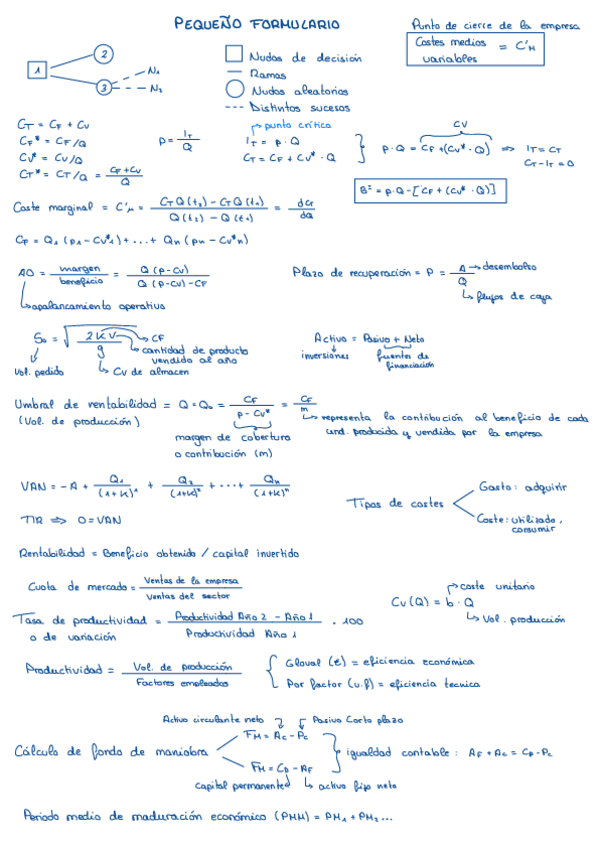 PEQUEÑO FORMULARIO
Punto de cierre de la empresa
Costes medios variables = C'M
1
2
3
N1
N2
Nudos de decisión
Ramas
Nudos aleatorios
Distintos sucesos
CT = CF + CV
CF* = CF/Q
CV* = CV/Q
CT* = CT/Q = CF+CV / Q
P = IT / Q
punto crítico
IT = p · Q
CT = CF + CV* · Q
CV
p · Q = CF + (CV* · Q) ⇒ IT = CT
CT - IT = 0
Bº = p·Q - [CF + (CV* · Q)]
Coste marginal = C'M = CTQ(t2) - CTQ(t1) / Q(t2) - Q(t1) = dCT / dQ
CF = Q1 (p1 - CV*1) + ... + Qn (pn - CV*n)
AO = margen / beneficio = Q (P-CV) / Q (P-CV) - CF
apalancamiento operativo
Plazo de recuperación = P = A / Q
desembolso
flujos de caja
So = √ 2KV / g
CF
cantidad de producto
vendido al año
Vol. pedido
CV de almacen
Activo = Pasivo + Neto
inversiones
fuentes de
financiación
Umbral de rentabilidad = Q = Qo = CF / p - CV* = CF / m
(Vol. de producción)
margen de cobertura
o contribución (m)
representa la contribución al beneficio de cada
und. producida y vendida por la empresa
VAN = -A + Q1 / (1+K)¹ + Q2 / (1+K)² + ... + Qn / (1+K)ⁿ
TIR ⇒ 0 = VAN
Tipos de costes
Gasto: adquirir
Coste: utilizado,
consumir
Rentabilidad = Beneficio obtenido / capital invertido
Cuota de mercado = Ventas de la empresa / Ventas del sector
coste unitario
CV(Q) = b · Q
Vol. producción
Tasa de productividad = Productividad Año 2 - Año 1 / Productividad Año 1 · 100
o de variación
Productividad = Vol. de producción / Factores empleados
Gloval (€) = eficiencia económica
Por factor (u.f) = eficiencia tecnica
Activo circulante neto
Pasivo Corto plazo
Cálculo de fondo de maniobra
FM = AC - PC
FM = CP - AF
igualdad contable: AF + AC = CP - PC
capital permanente
activo fijo neto
Periodo medio de maduración económico (PMM) = PM1 + PM2...